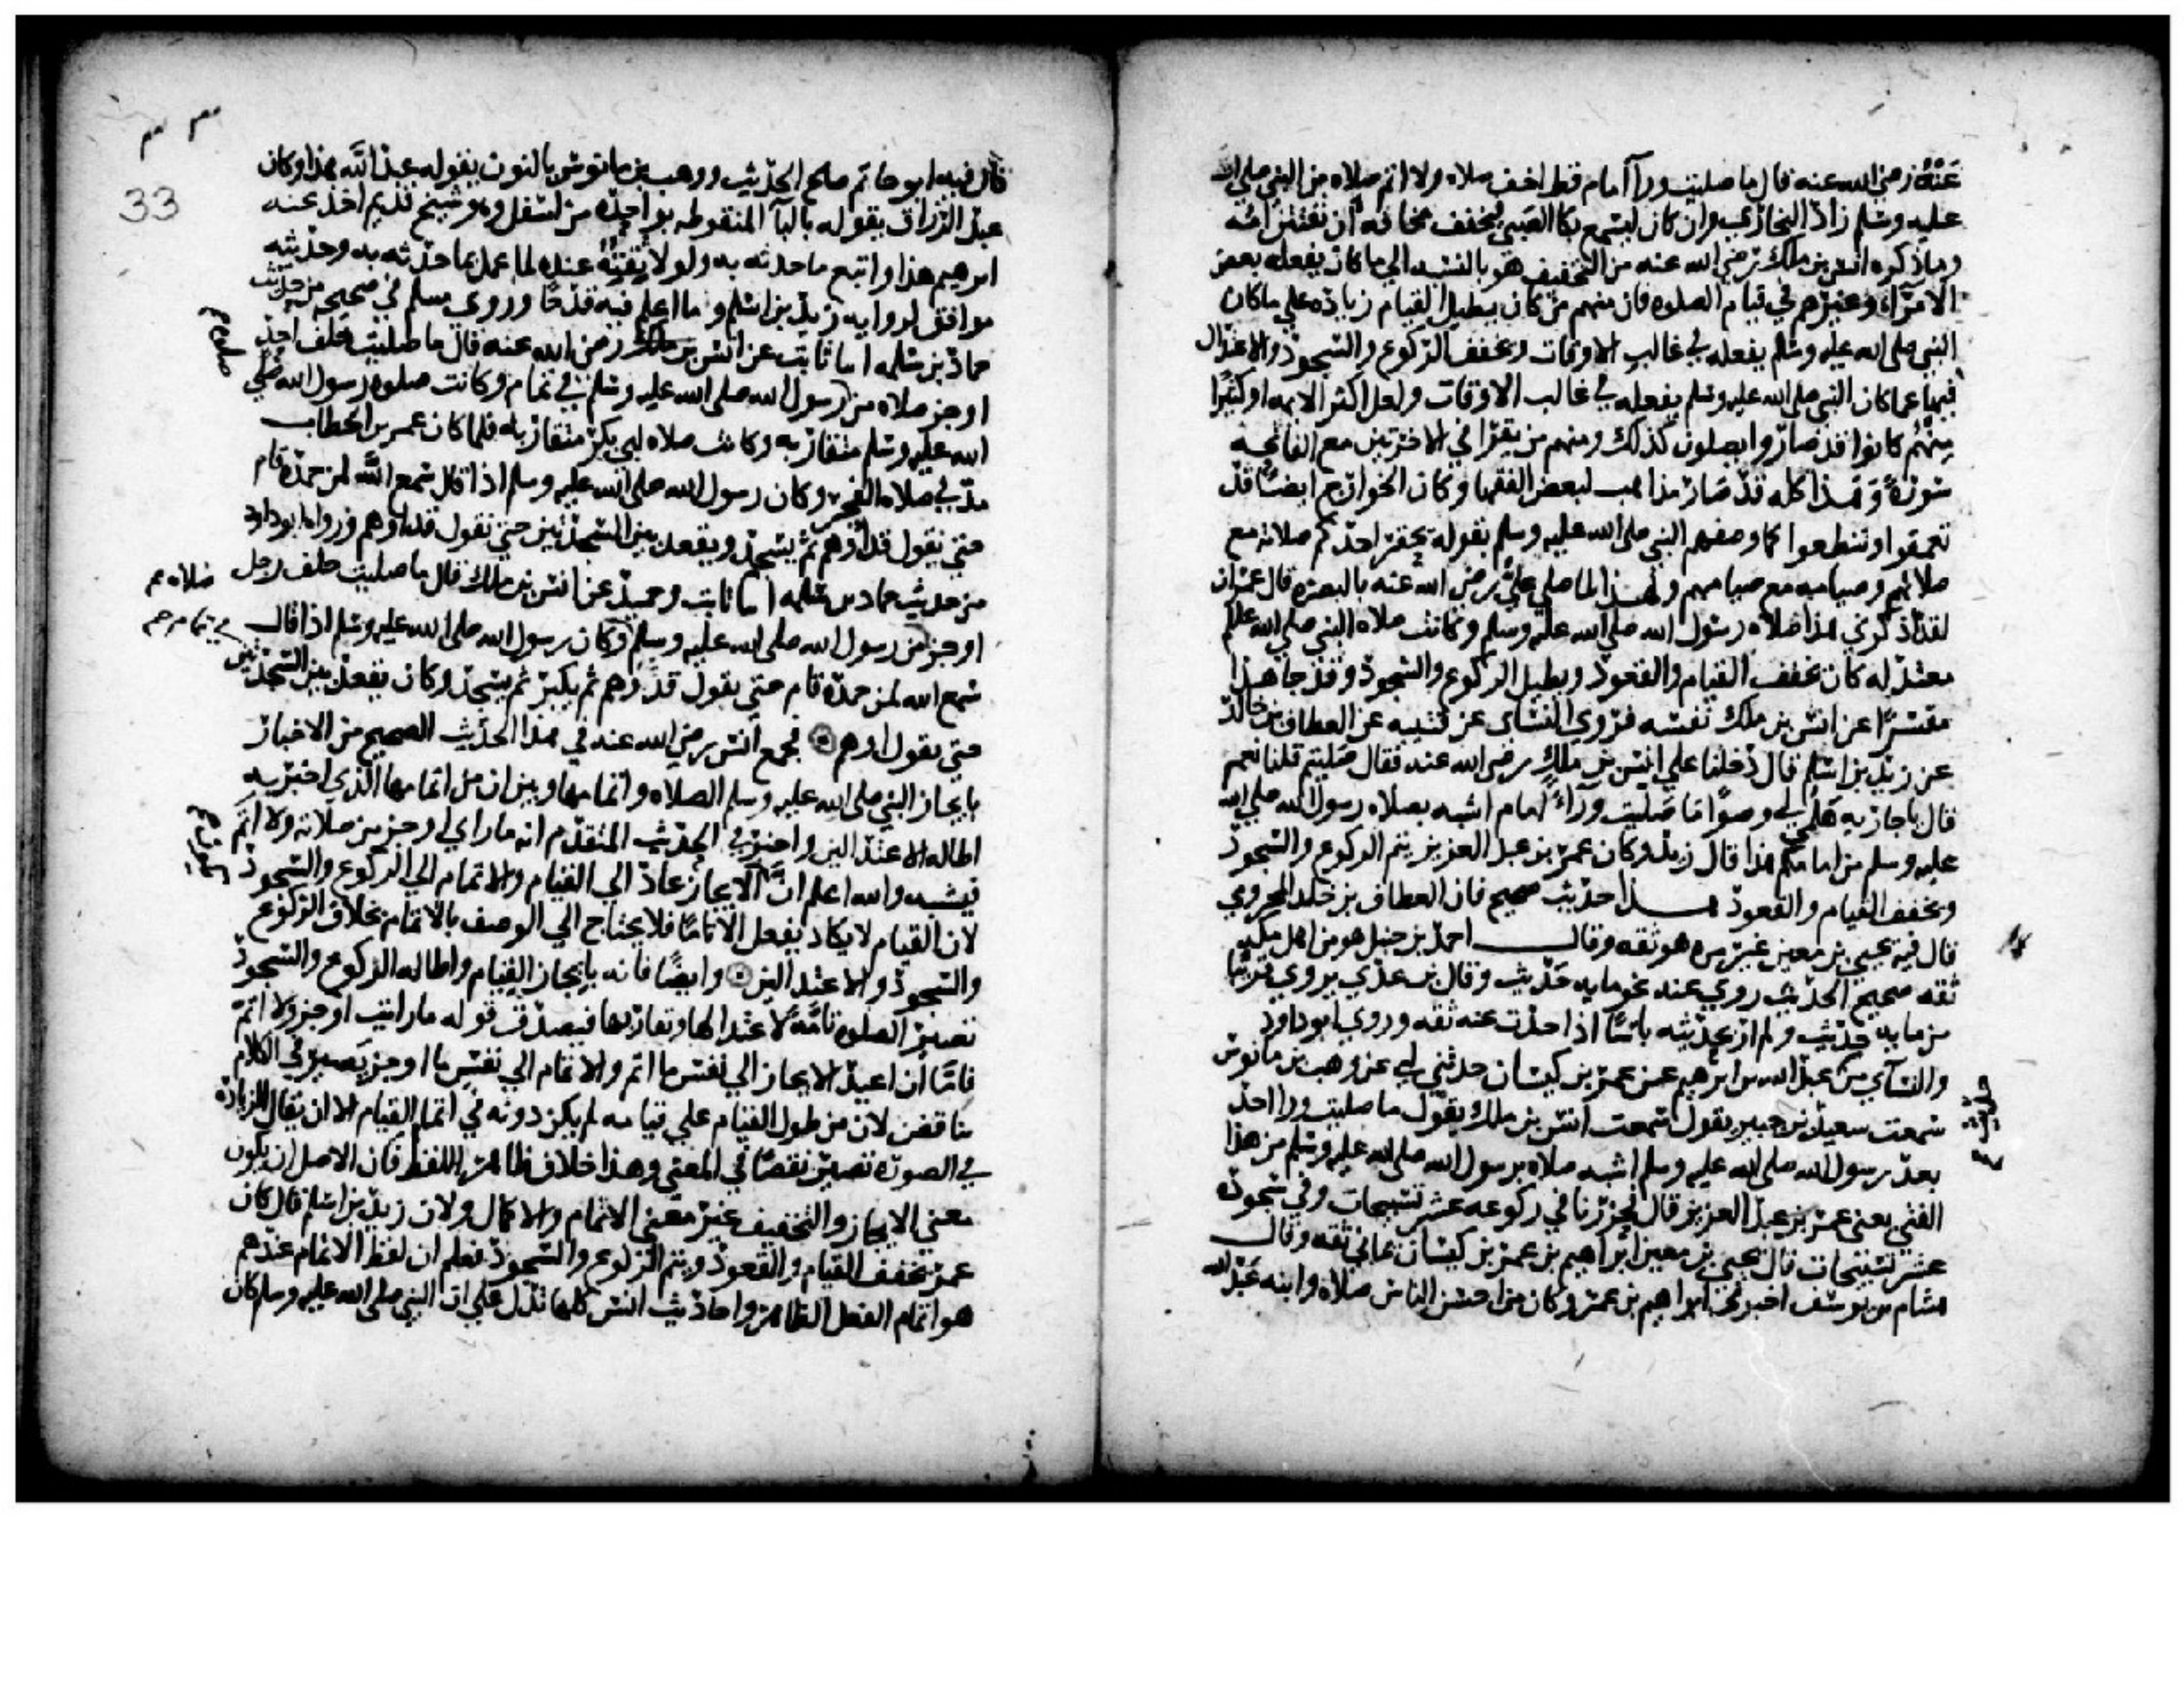 عنه رضي الله عنه قال ما صليت ورآ امام قط اخف صلاه ولا اتم صلاه من النبي صلى الله
عليه وسلم زاد البخاري وان كان ليسمع بكا الصبي فيخفف مخافة ان تفتتن امه
وما ذكره انس بن ملك رضي الله عنه من التخفيف هو بالنسبه الي ما كان يفعله بعض
الامرآء وغيرهم في قيام الصلوه فان منهم من كان يطيل القيام زياده علي ما كان
النبي صلى الله عليه وسلم يفعله في غالب الاوقات ويخفف الركوع والسجود والاعتدال
فيها عما كان النبي صلى الله عليه وسلم يفعله في غالب الاوقات ولعل اكثر الايمه او كثيرا
منهم كانوا قد صاروا يصلون كذلك ومنهم من يقرا في الاخرتين مع الفاتحه
سورة وهذا كله قد صار مذاهب لبعض الفقها وكان الخوارج ايضا قد
تعمقوا وتنطعوا كما وصفهم النبي صلى الله عليه وسلم بقوله يحقر احدكم صلاته مع
صلاتهم وصيامه مع صيامهم ولهذا لما صلي علي رضي الله عنه بالبصره قال عمران
لقد اذكرني هذا صلاه رسول الله صلى الله عليه وسلم وكانت صلاه النبي صلى الله عليه وسلم
معتدله كان يخفف القيام والقعود ويطيل الركوع والسجود وقد جا هذا
مفسرا عن انس بن ملك نفسه فروي النساي عن قتيبه عن العطاف بن خالد
عن زيد بن اسلم قال دخلنا علي انس بن ملك رضي الله عنه فقال صليتم قلنا نعم
قال يا جاريه هلمي لي وضوا ما صليت ورآء امام اشبه بصلاه رسول الله صلى الله
عليه وسلم من امامكم هذا قال زيد وكان عمر بن عبد العزيز يتم الركوع والسجود
ويخفف القيام والقعود هذا حديث صحيح فان العطاف بن خلد المخزومي
قال فيه يحيي بن معين غير مره هو ثقه وقال احمد بن حنبل هو من اهل مكه
ثقه صحيح الحديث روي عنه نحو مايه حديث وقال بن عدي يروي قريبا
من مايه حديث ولم ار بحديثه باسا اذا حدث عنه ثقه وروي ابو داود
والنسآي من عبد الله بن ابرهيم عن عمر بن كيسان حدثني ابي عن وهب بن مانوس
سمعت سعيد بن جبير يقول سمعت انس بن ملك يقول ما صليت ورا احد
بعد رسول الله صلى الله عليه وسلم اشبه صلاه برسول الله صلى الله عليه وسلم من هذا
الفتي يعني عمر بن عبد العزيز قال فحزرنا في ركوعه عشر تسبيحات وفي سجوده
عشر تسبيحات قال يحيي بن معين ابراهيم بن عمر بن كيسان يماني ثقه وقال
هشام بن يوسف اخبرني ابراهيم بن عمر وكان من احسن الناس صلاه وابنه عبد الله
33
قال فيه ابو حاتم صلح الحديث ووهب بن مانوس بالنون يقوله عبد الله هذا وكان
عبد الرزاق يقوله بالبآ المنقوطه بواحده من اسفل وهو شيخ قديم اخذ عنه
ابرهيم هذا واتبع ما حدثه به ولولا ثقته عنده لما عمل بما حدثه به وحديثه
موافق لروايه زيد بن اسلم وما اعلم فيه قدحا وروي مسلم في صحيحه من حديث
حماد بن سلمه انا ثابت عن انس بن ملك رضي الله عنه قال ما صليت خلف احد
اوجز صلاه من رسول الله صلى الله عليه وسلم في تمام وكانت صلوه رسول الله صلي
الله عليه وسلم متقاربه وكانت صلاه ابي بكر متقاربه فلما كان عمر بن الخطاب
مد في صلاه الفجر وكان رسول الله صلى الله عليه وسلم اذا قال سمع الله لمن حمده قام
حتي نقول قد اوهم ثم يسجد ويقعد بين السجدتين حتي نقول قد اوهم ورواه ابو داود
من حديث حماد بن سلمه انا ثابت وحميد عن انس بن ملك قال ما صليت خلف رجل
صلاه
اوجز من رسول الله صلى الله عليه وسلم وكان رسول الله صلى الله عليه وسلم اذا قال
في تمام
سمع الله لمن حمده قام حتي نقول قد اوهم ثم يكبر ثم يسجد وكان يقعد بين السجدتين
حتي نقول اوهم فجمع انس رضي الله عنه في هذا الحديث الصحيح من الاخبار
بايجاز النبي صلى الله عليه وسلم الصلاه واتمامها وبين ان من اتمامها الذي اخبر به
اطاله الاعتدالين واخبر في الحديث المتقدم انه ما راي اوجز من صلاته ولا اتم
فيشبه والله اعلم ان الايجاز عاد الي القيام والاتمام الي الركوع والسجود
لان القيام لا يكاد يفعل الا تاما فلا يحتاج الي الوصف بالاتمام بخلاف الركوع
والسجود والاعتدالين وايضا فانه بايجاز القيام واطاله الركوع والسجود
تصير الصلوه تامه لاعتدالها وتقاربها فيصدق قوله ما رايت اوجز ولا اتم
فاما ان اعيد الايجاز الي نفس ما اتم والاتمام الي نفس ما اوجز يصير في الكلام
تناقض لان من طول القيام علي قيامه لم يكن دونه في اتمام القيام الا ان يقال الزياده
في الصوره تصير نقصا في المعني وهذا خلاف ظاهر اللفظ فان الاصل ان يكون
معني الايجاز والتخفيف غير معني الاتمام والاكمال ولان زيد بن اسلم قال كان
عمر يخفف القيام والقعود ويتم الركوع والسجود فعلم ان لفظ الاتمام عندهم
هو اتمام الفعل الظاهر واحاديث انس كلها تدل علي ان النبي صلى الله عليه وسلم كان